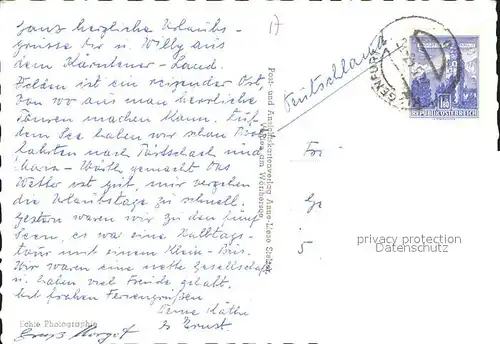 Ganz herzliche Urlaubs-
grüsse Dir u. Willy aus
dem Kärntener-Land.
Velden ist ein reizender Ort,
von wo aus man herrliche
Touren machen kann. Auf
dem See haben wir schon
fahrten nach Pörtschach und
Maria-Wörth gemacht. Das
Wetter ist gut, nur vergehen
die Urlaubstage zu schnell.
Gestern waren wir zu den fünf
Seen, es war eine Halbtags-
tour mit einem Klein-Bus.
Wir waren eine nette Gesellschaft
u. haben viel Freude gehabt.
Mit frohen Feriengrüßen
Deine Käthe
u. Ernst.
Echte Photographie
Gruß Margot
Post- und Ansichtskartenverlag Anne-Liese
Velden am Wörthersee
Deutschland
REPUBLIK ÖSTERREICH
5
privacy protection
Datenschutz